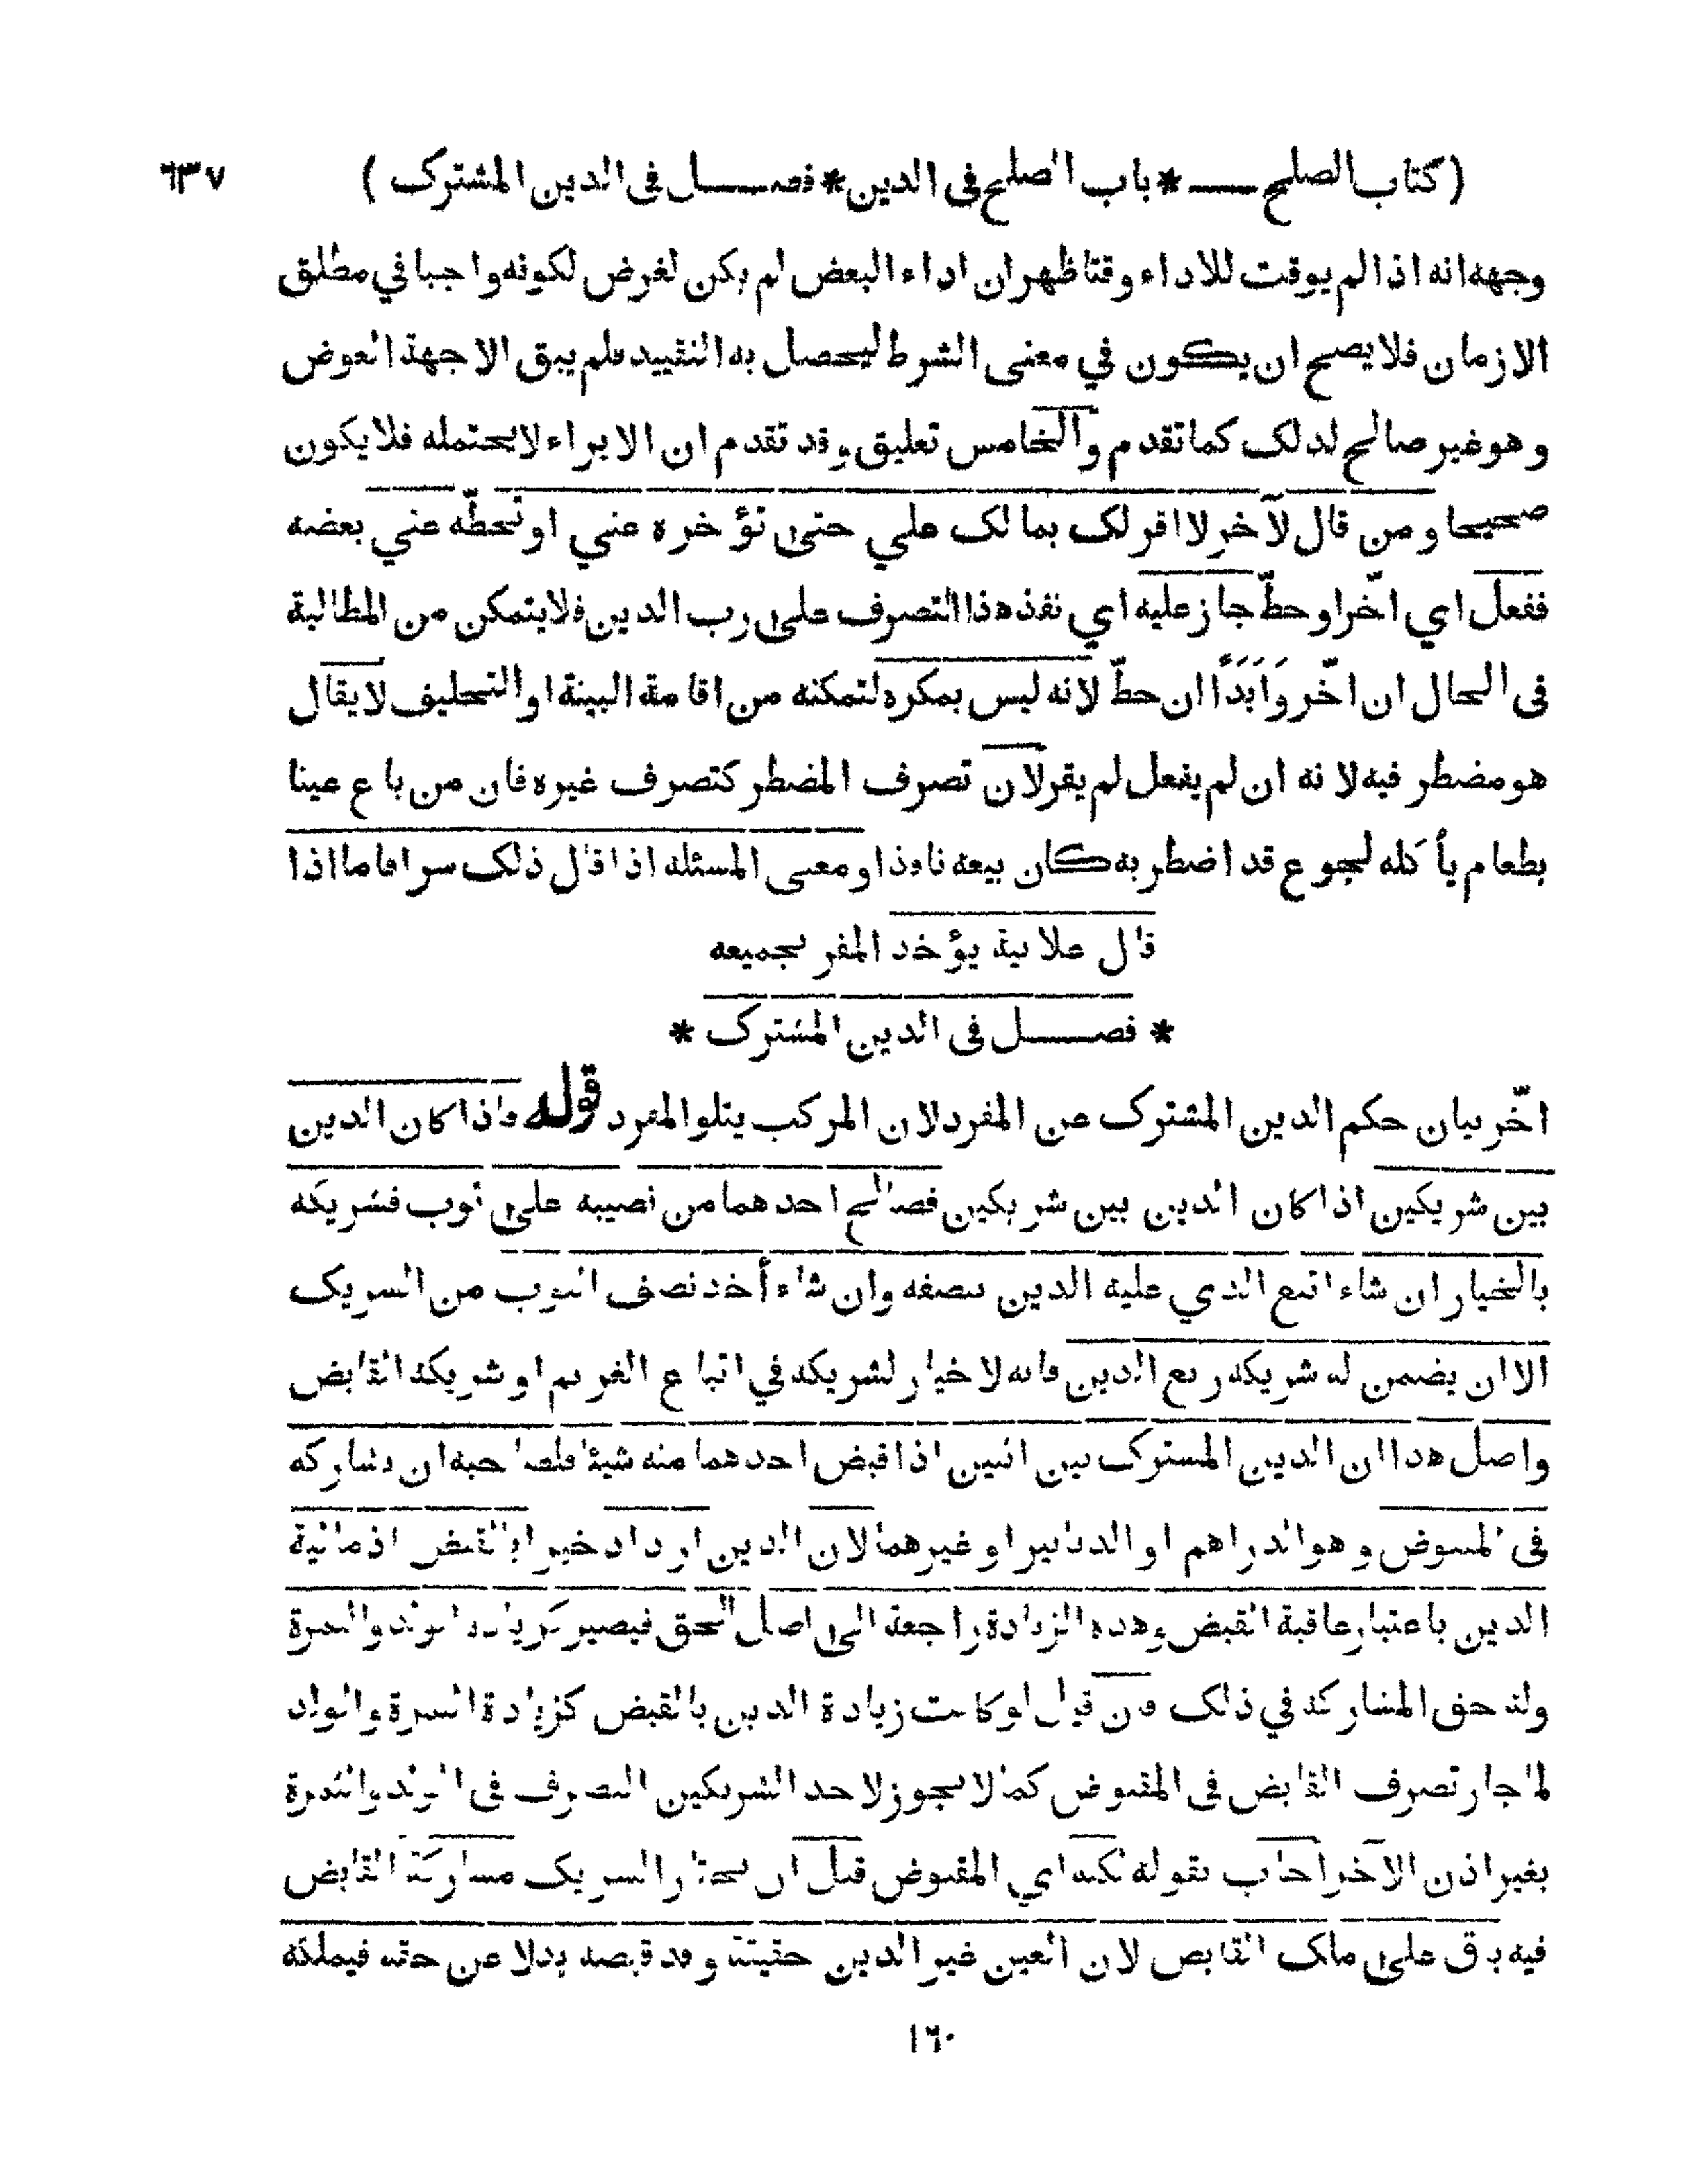 (كتاب الصلح * باب الصلح فى الدين * فصل فى الدين المشترك) ٦٣٧
وجهه انه اذا لم يوقت للاداء وقتا ظهر ان اداء البعض لم يكن لغرض لكونه واجبا في مطلق
الازمان فلا يصح ان يكون في معنى الشرط ليحصل به التقييد فلم يبق الا جهة العوض
وهو غير صالح لذلك كما تقدم والخامس تعليق وقد تقدم ان الابراء لا يحتمله فلا يكون
صحيحا ومن قال لآخر لا اقر لك بما لك علي حتى تؤخره عني او تحطّه عني بعضه
ففعل اي اخّر او حطّ جاز عليه اي نفذ هذا التصرف على رب الدين فلا يتمكن من المطالبة
فى الحال ان اخّر وَاَبَدًا ان حطّ لانه ليس بمكره لتمكنه من اقامة البينة او التحليف لا يقال
هو مضطر فيه لانه ان لم يفعل لم يقر لان تصرف المضطر كتصرف غيره فان من باع عينا
بطعام يأكله لجوع قد اضطر به كان بيعه نافذا ومعنى المسئله اذا قال ذلك سرا فاما اذا
قال علانية يؤخذ المقر بجميعه
* فصل فى الدين المشترك *
اخّر بيان حكم الدين المشترك عن المفرد لان المركب يتلو المفرد قوله واذا كان الدين
بين شريكين اذا كان الدين بين شريكين فصالح احدهما من نصيبه على ثوب فشريكه
بالخيار ان شاء اتبع الذي عليه الدين بنصفه وان شاء أخذ نصف الثوب من الشريك
الا ان يضمن له شريكه ربع الدين فانه لا خيار لشريكه في اتباع الغريم او شريكه القابض
واصل هذا ان الدين المشترك بين اثنين اذا قبض احدهما منه شيئا فلصاحبه ان يشاركه
فى المقبوض وهو الدراهم او الدنانير او غيرهما لان الدين ازداد خيرا بالقبض اذ مالية
الدين باعتبار عاقبة القبض وهذه الزيادة راجعة الى اصل الحق فيصير كزيادة الولد والثمرة
وله حق المشاركة في ذلك فان قيل لو كانت زيادة الدين بالقبض كزيادة الثمرة والولد
لما جاز تصرف القابض فى المقبوض كما لا يجوز لاحد الشريكين التصرف فى الولد والثمرة
بغير اذن الآخر اجاب بقوله لكنه اي المقبوض قبل ان يختار الشريك مشاركة القابض
فيه باق على ملك القابض لان العين غير الدين حقيقة وقد قبضه بدلا عن حقه فيملكه
١٦٠